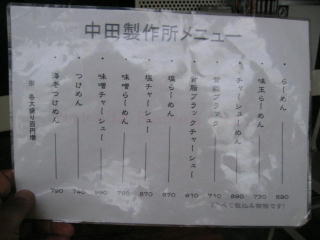 中田製作所メニュー
らーめん 590
味玉らーめん 730
チャーシューめん 890
背脂ブラック 710
背脂ブラックチャーシュー
塩らーめん 670
塩チャーシュー 970
味噌らーめん
味噌チャーシュー
つけめん 740
つけめん 790
※ 各大盛り百円増